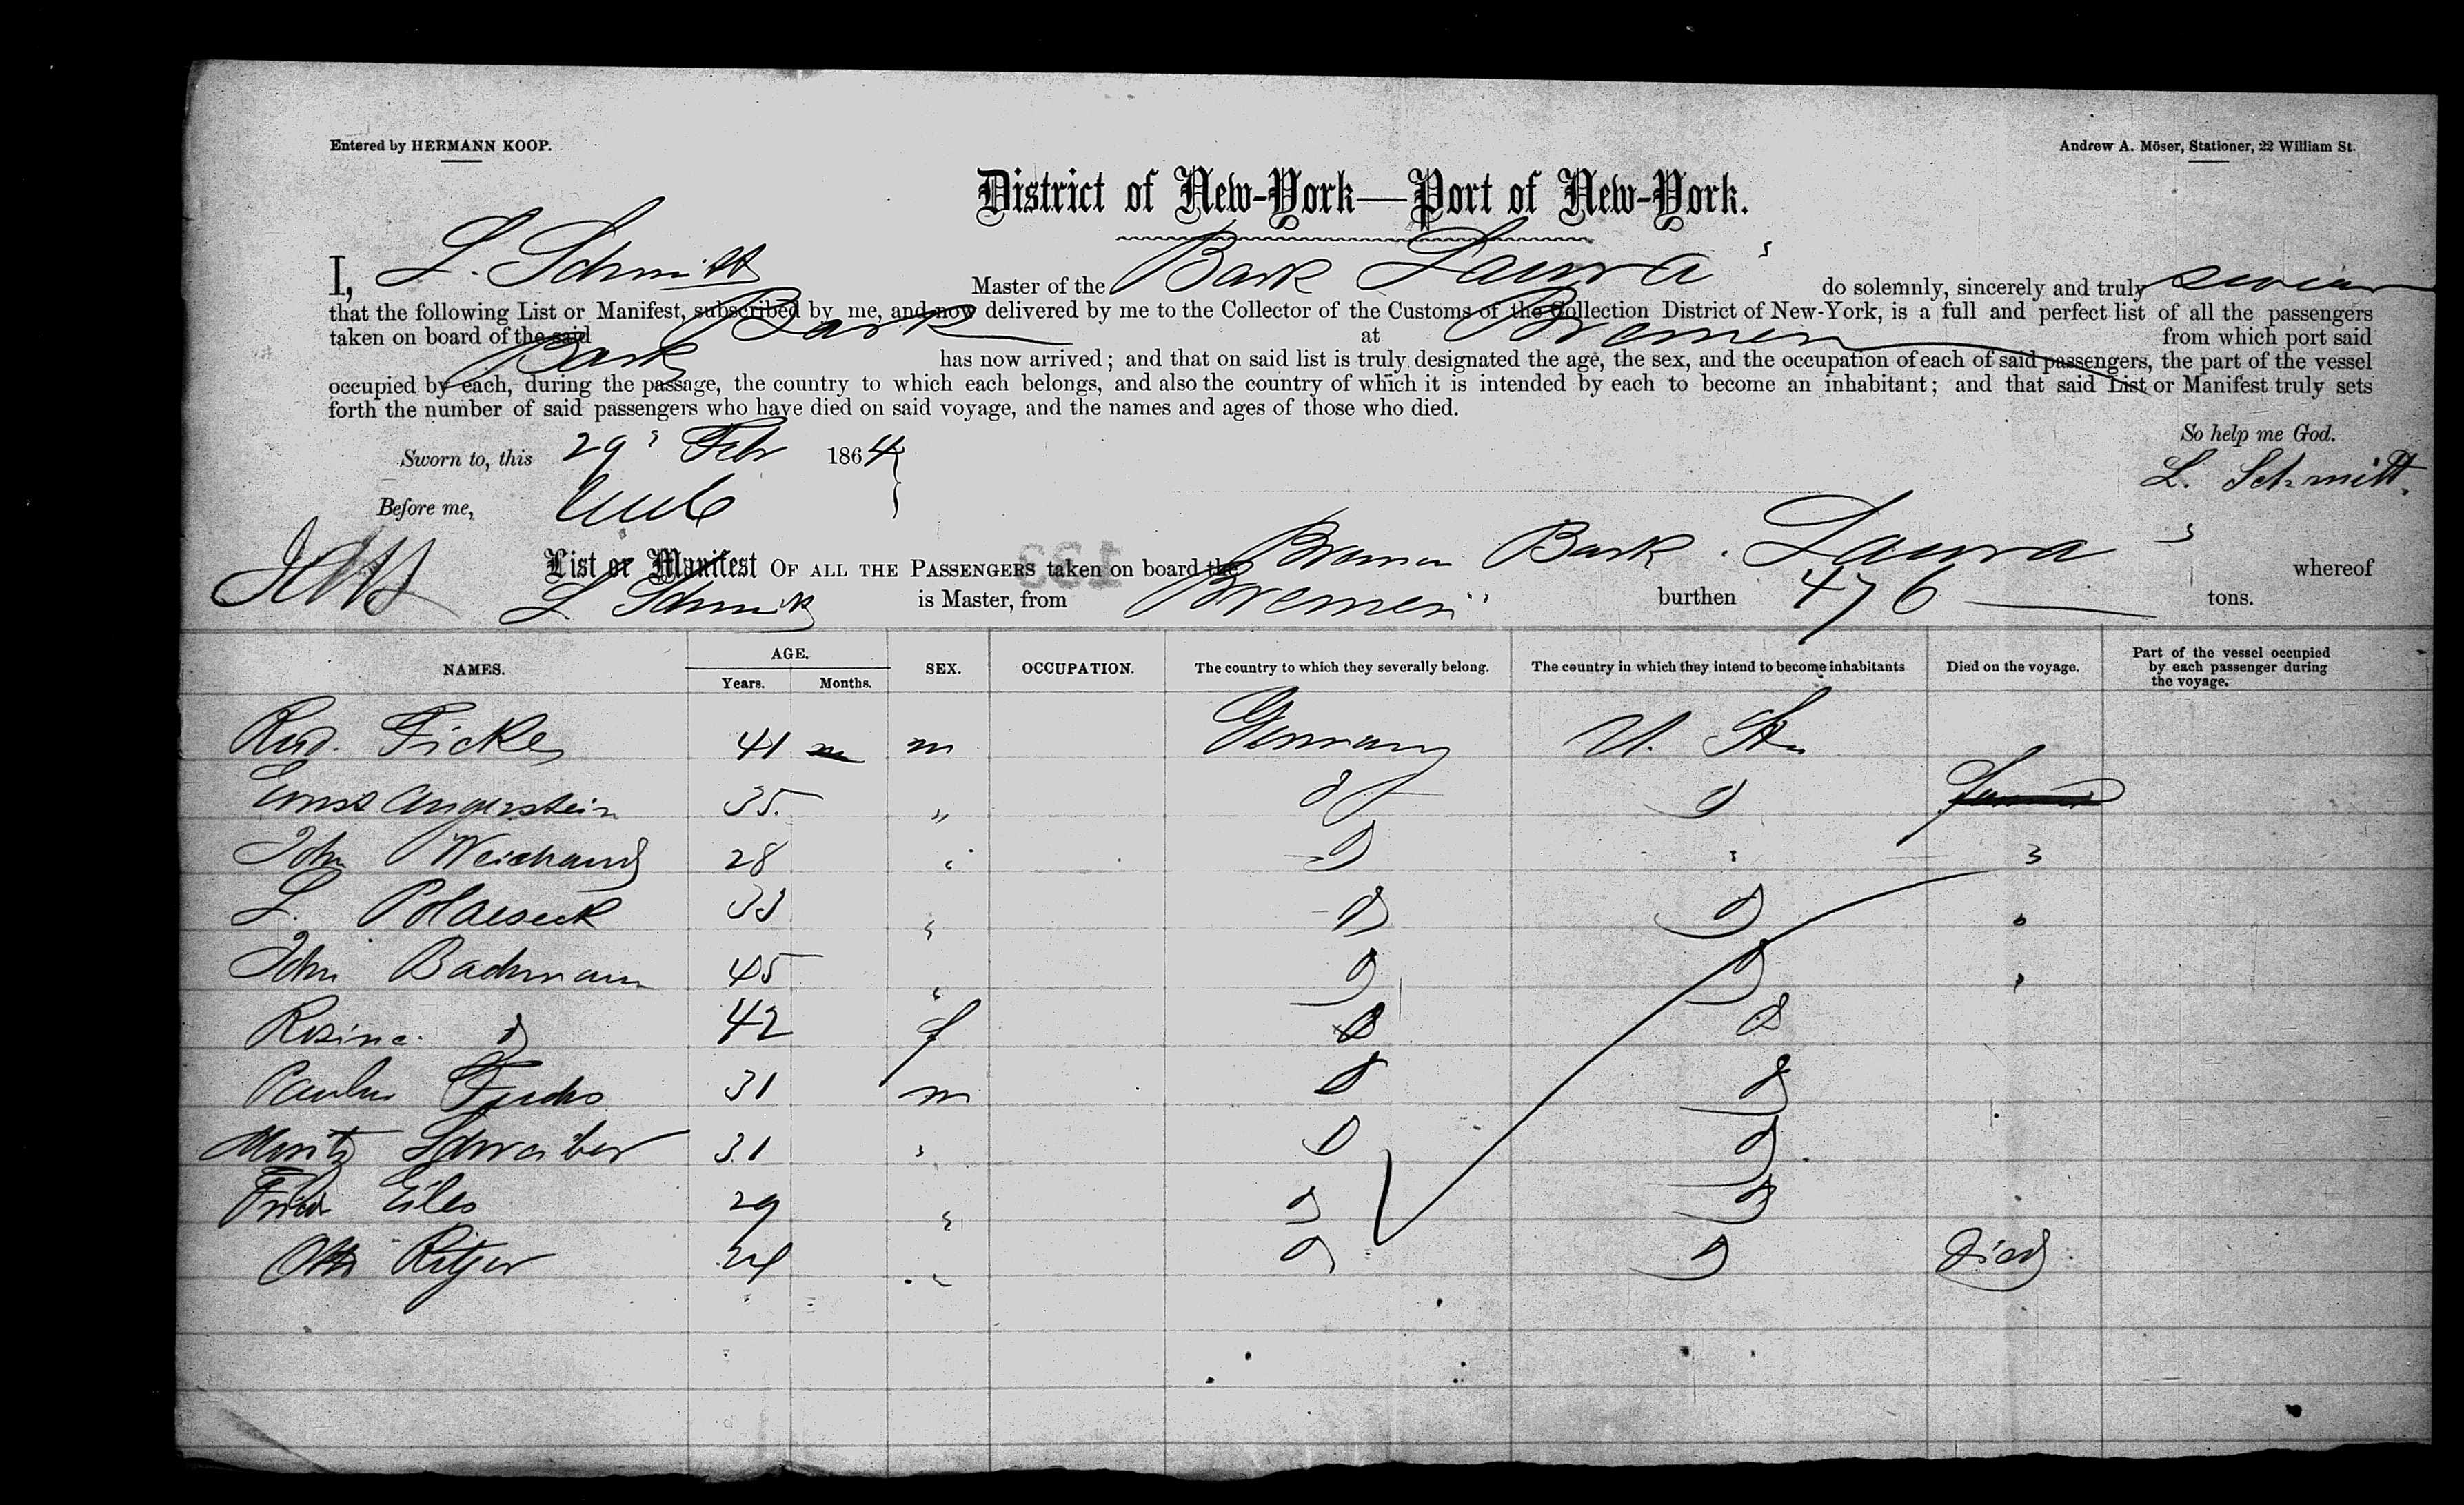 Entered by HERMANN KOOP.
Andrew A. Möser, Stationer, 22 William St.
District of New-York—Port of New-York.
I, L. Schmidt Master of the Bark Laura do solemnly, sincerely and truly swear
that the following List or Manifest, subscribed by me, and now delivered by me to the Collector of the Customs of the Collection District of New-York, is a full and perfect list of all the passengers
taken on board of the said Bark at Bremen from which port said
Bark has now arrived; and that on said list is truly designated the age, the sex, and the occupation of each of said passengers, the part of the vessel
occupied by each, during the passage, the country to which each belongs, and also the country of which it is intended by each to become an inhabitant; and that said List or Manifest truly sets
forth the number of said passengers who have died on said voyage, and the names and ages of those who died.
So help me God.
Sworn to, this 29 Feb 1864
L. Schmitt.
Before me,
List or Manifest OF ALL THE PASSENGERS taken on board the Bremen Bark Laura whereof
L Schmidt is Master, from Bremen burthen 476 tons.
133
NAMES. AGE. Years. Months. SEX. OCCUPATION. The country to which they severally belong. The country in which they intend to become inhabitants Died on the voyage. Part of the vessel occupied by each passenger during the voyage.
Rud. Ficke 41 m Germany U. Sta
Ernst Angerstein 35. " do d
John Weichand 28 " d "
L. 33 " d d
John Bachmann 45 " d d
Rosine d 42 f d d
Paulus Fuchs 31 m d d
Moritz Schreiber 31 " d d
Friedr Eiles 29 " d d
Otto Ritzer 24 " d d Died